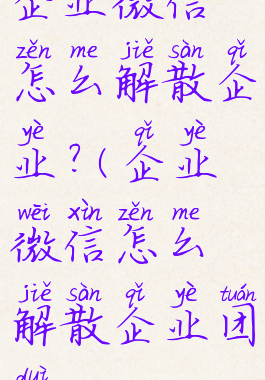 企业微信
zěn me jiě sàn qǐ
怎么解散企
yè qǐ yè
业?(企业
wēi xìn zěn me
微信怎么
jiě sàn qǐ yè tuán
解散企业团
duì